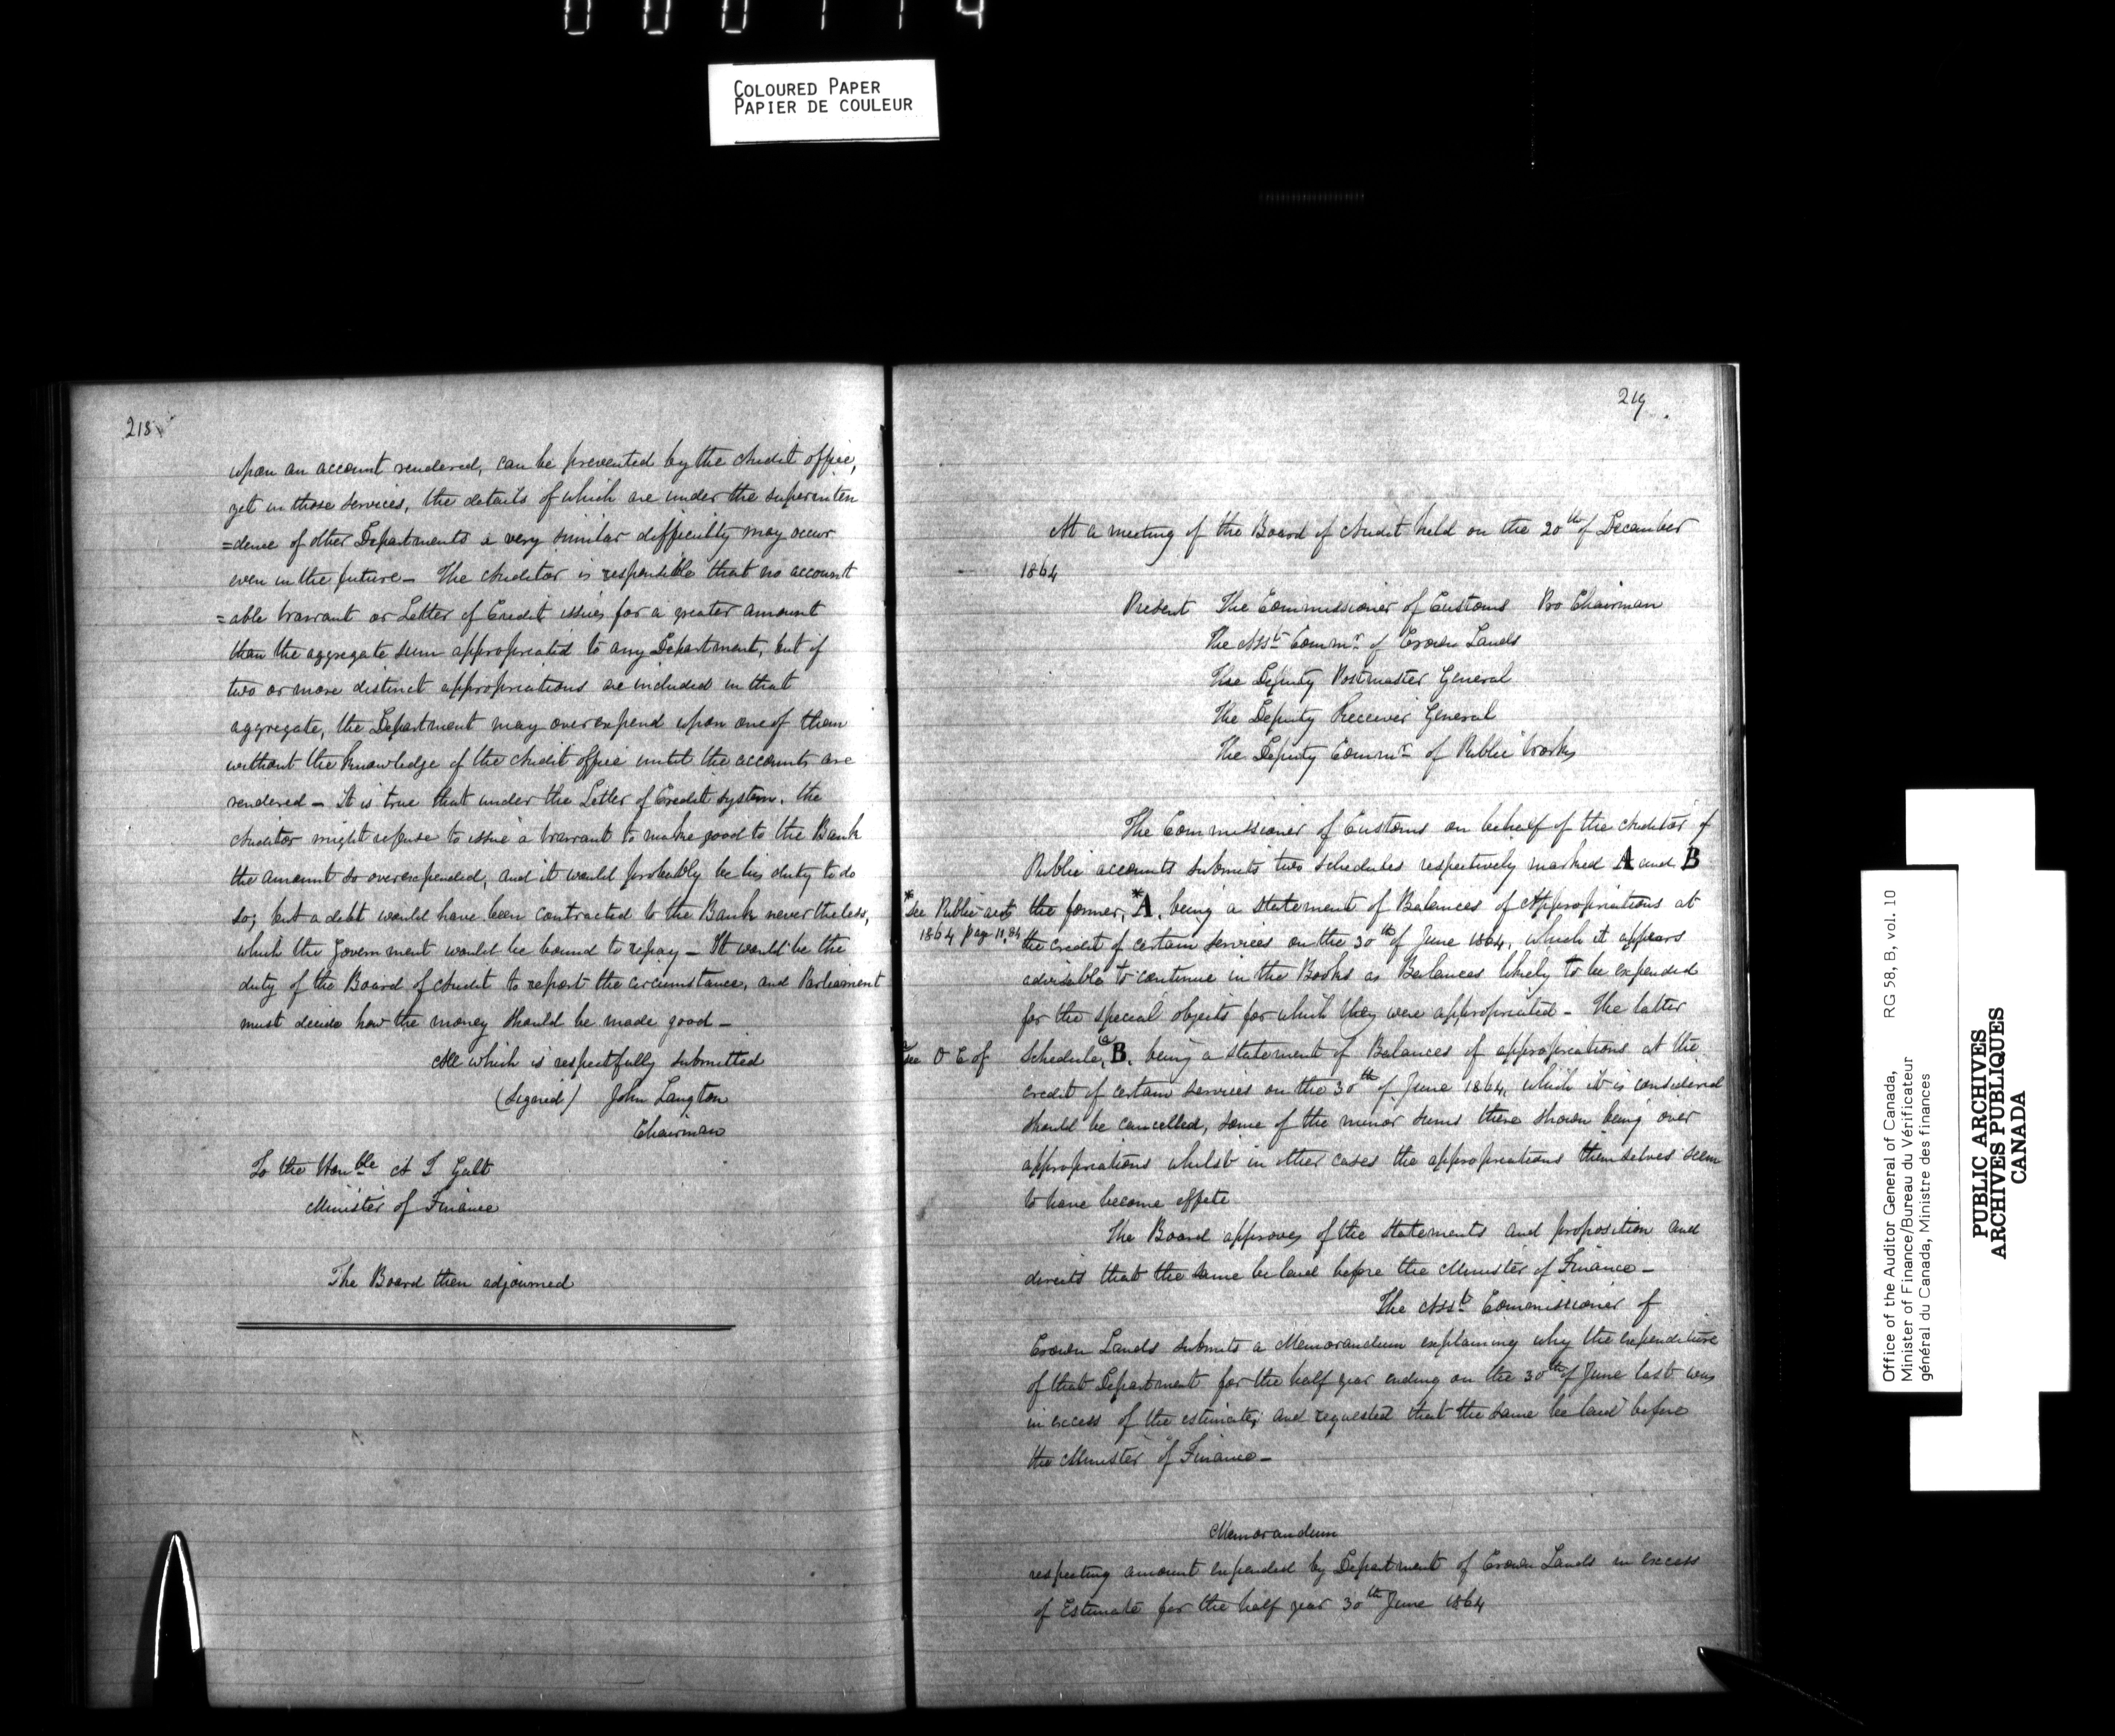 COLOURED PAPER
PAPIER DE COULEUR
218
upon an account rendered, can be prevented by the Audit office,
yet in those services, the details of which are under the superinten
=dence of other Departments a very similar difficulty may occur
even in the future_ The Auditor is responsible that no account
=able warrant or Letter of Credit issues for a greater amount
than the aggregate sum appropriated to any Department, but if
two or more distinct appropriations are included in that
aggregate, the Department may overexpend upon one of them
without the knowledge of the Audit office until the accounts are
rendered_ It is true that under the Letter of Credit system, the
Auditor might refuse to issue a warrant to make good to the Bank
the amount so overexpended, and it would probably be his duty to do
so; but a debt would have been contracted to the Bank nevertheless,
which the Government would be bound to repay_ It would be the
duty of the Board of Audit to report the circumstance, and Parliament
must decide how the money should be made good_
All which is respectfully submitted
(Signed) John Langton
Chairman
To the Honble A T Galt
Minister of Finance
The Board then adjourned
219
At a meeting of the Board of Audit held on the 20th of December
1864
Present The Commissioner of Customs Pro Chairman
The Asst Commr of Crown Lands
The Deputy Postmaster General
The Deputy Receiver General
The Deputy Commr of Public Works
The Commissioner of Customs on behalf of the Auditor of
Public accounts submits two schedules respectively marked A and B
*See Public acts
1864 page
the former, *A, being a statement of Balances of Appropriations at
the credit of certain services on the 30th of June 1864, which it appears
advisable to continue in the Books as Balances likely to be expended
for the special objects for which they were appropriated_ The latter
See O C of
Schedule, B, being a statement of Balances of appropriations at the
credit of certain services on the 30th of June 1864, which it is considered
should be cancelled, some of the minor sums there shown being over
appropriations whilst in other cases the appropriations themselves seem
to have become effete
The Board approves of the statements and proposition and
directs that the same be laid before the Minister of Finance_
The Asst Commissioner of
Crown Lands submits a Memorandum explaining why the expenditure
of that Department for the half year ending on the 30th of June last was
in excess of the estimate, and requested that the same be laid before
the Minister of Finance_
Memorandum
respecting amount expended by Department of Crown Lands in excess
of Estimate for the half year 30th June 1864
Office of the Auditor General of Canada, RG 58, B, vol. 10
Minister of Finance/Bureau du Vérificateur
général du Canada, Ministre des finances
PUBLIC ARCHIVES
ARCHIVES PUBLIQUES
CANADA